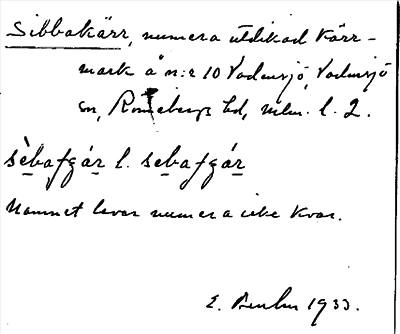 Sibbakärr, numera utdikad kärr-
mark å n:r 10 Vadensjö, Vadensjö
sn, Rönnebergs hd, Mlm. l. 2.
sèbafgár l. sebafgár
Namnet lever numera icke kvar.
E. 1933.